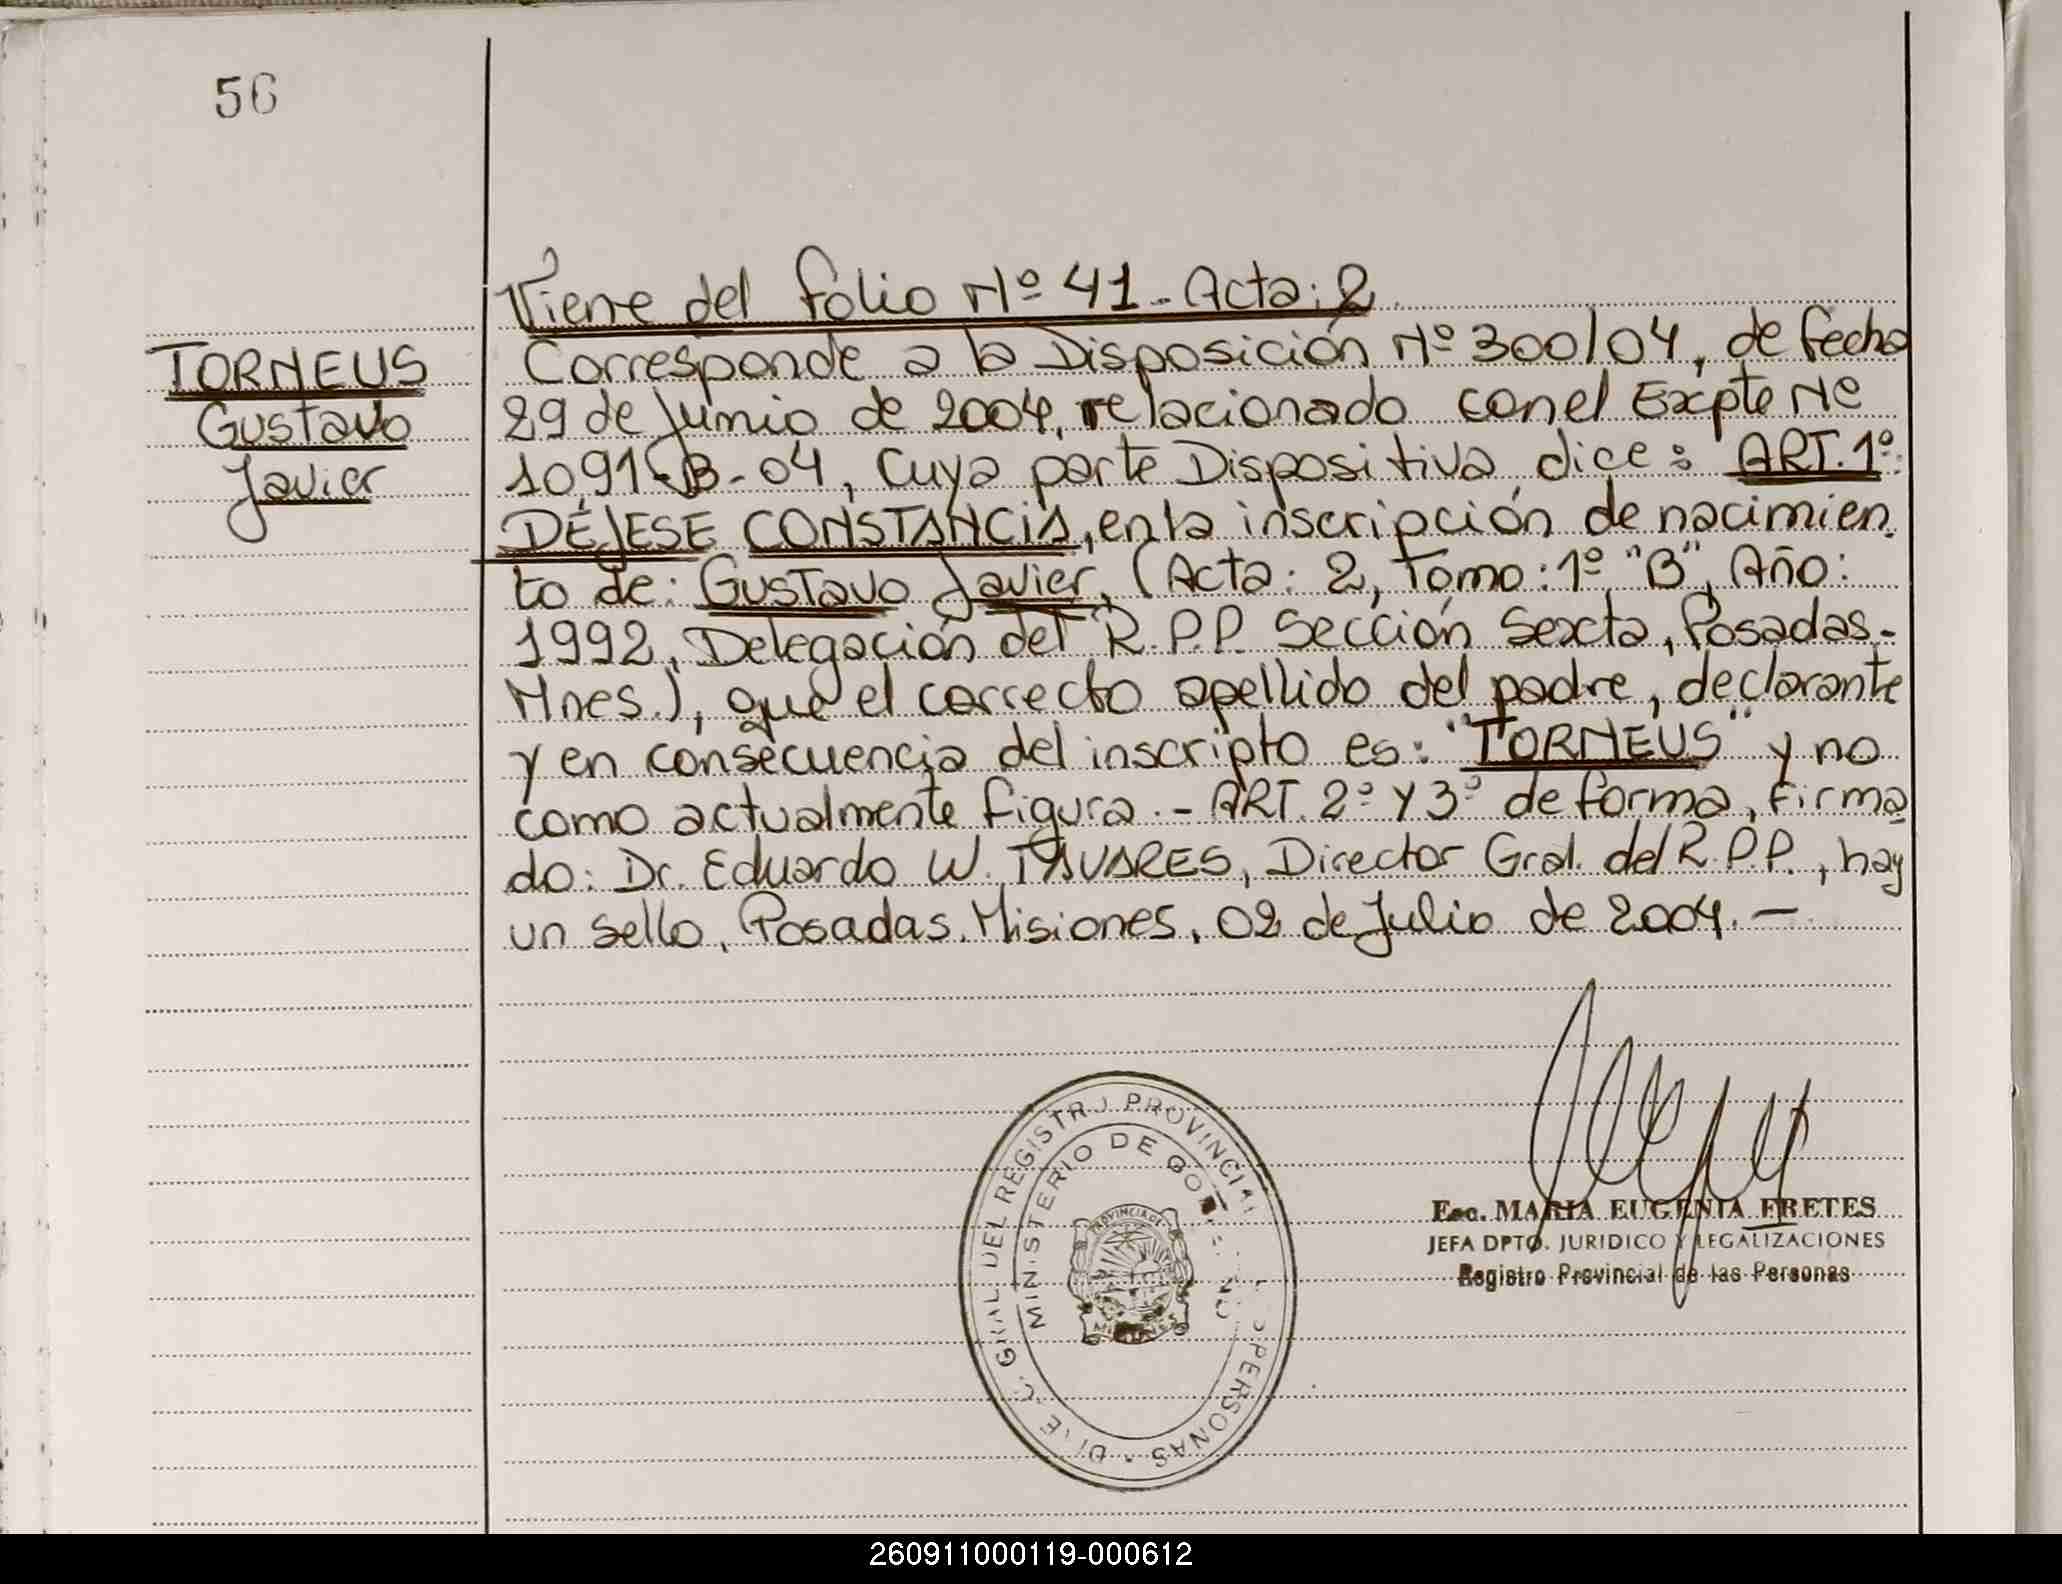 56
Viene del folio Nº 41 - Acta: 2
TORNEUS
Gustavo
Javier
Corresponde a la Disposición Nº 300/04, de fecha
29 de Junio de 2004, relacionado con el Expte Nº
1091-B-04, Cuya parte Dispositiva dice: ART. 1º:
DÉJESE CONSTANCIA, en la inscripción de nacimien
to de: Gustavo Javier, (Acta: 2, Tomo: 1º "B", Año:
1992, Delegación del R.P.P. Sección Sexta, Posadas-
Mnes.), que el correcto apellido del padre, declarante
y en consecuencia del inscripto es: "TORNEUS" y no
como actualmente figura.- ART. 2º Y 3º de forma, Firma
do: Dr. Eduardo W. TAVARES, Director Gral. del R.P.P., hay
un sello, Posadas, Misiones, 02 de Julio de 2004.-
GRAL. DEL REGISTRO PROVINCIAL PERSONAS
MINISTERIO DE
PROVINCIA DE
MISIONES
Esc. MARIA EUGENIA FRETES
JEFA DPTO. JURIDICO Y LEGALIZACIONES
Registro Provincial de las Personas
260911000119-000612